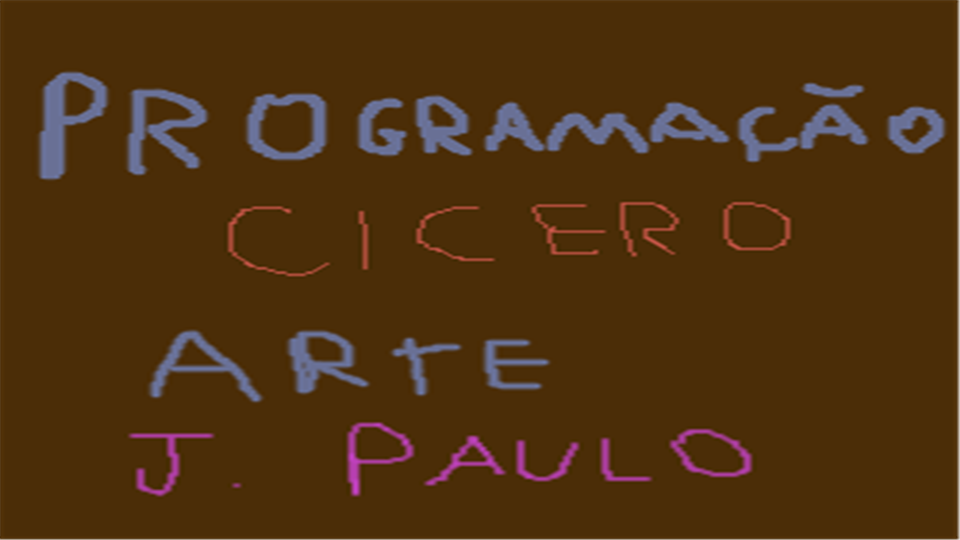 PROGRAMAÇÃO
CICERO
ARTE
J. PAULO